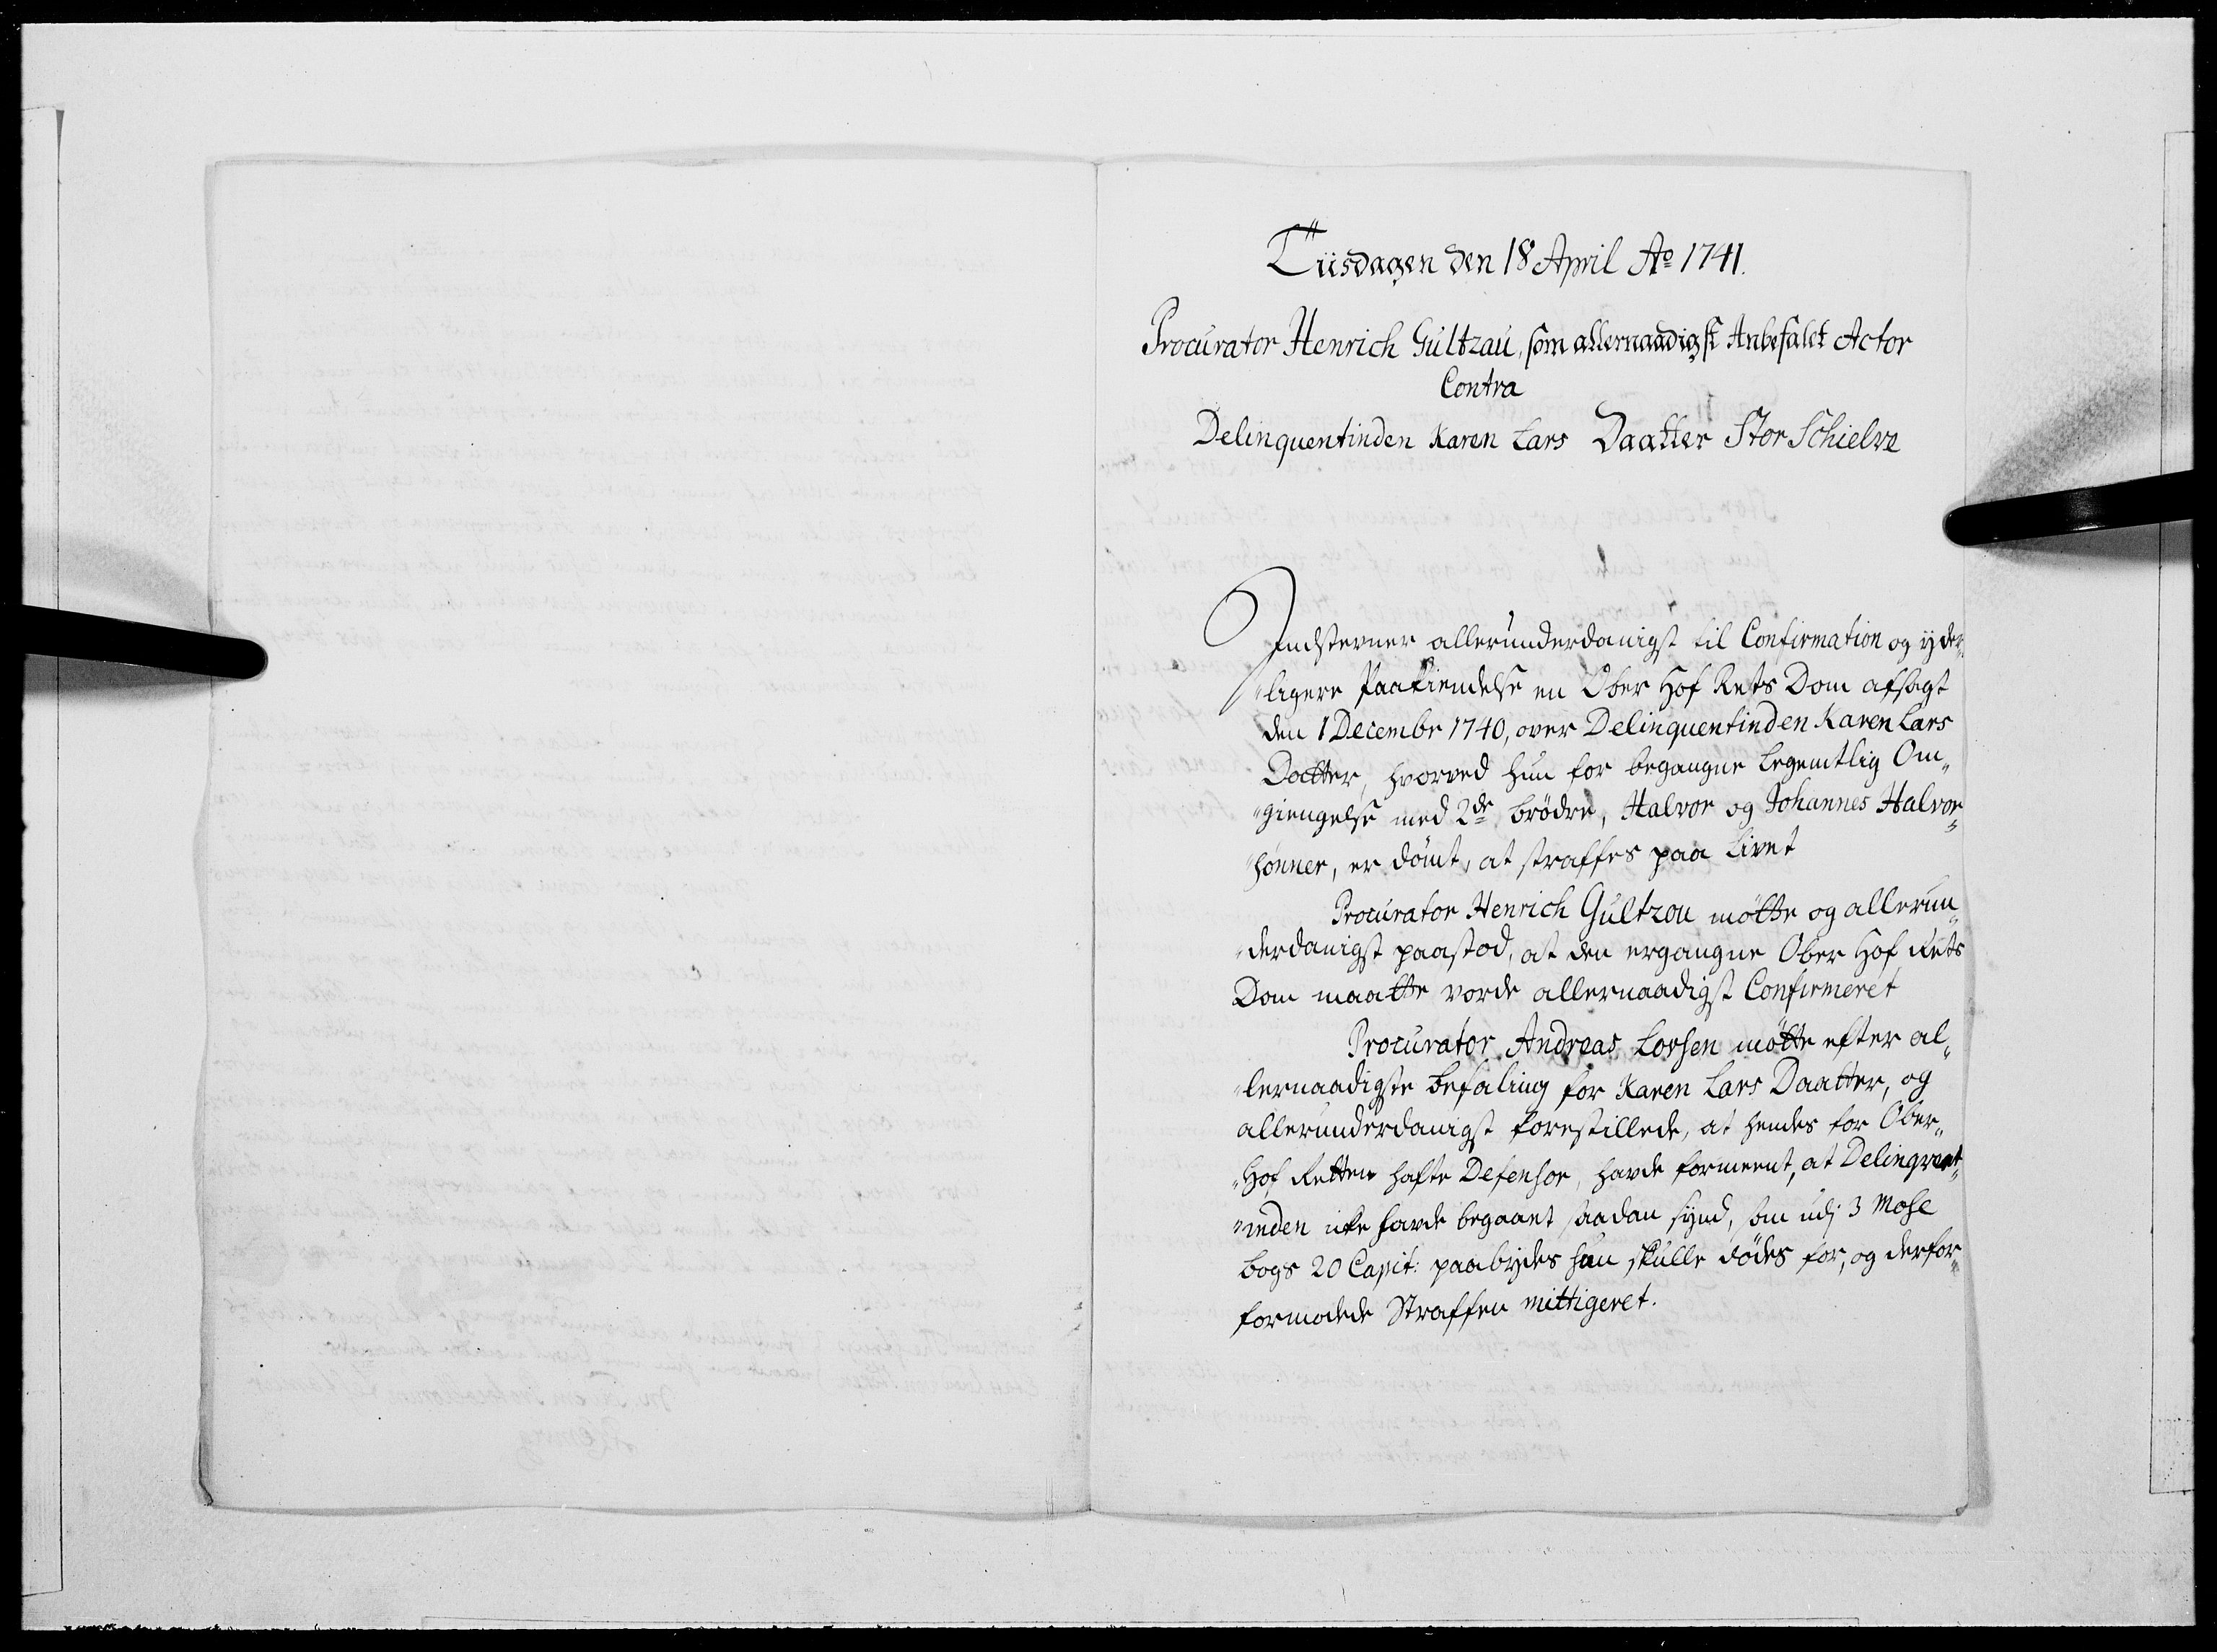 Tiisdagen den 18 April Ao 1741.
Procurator Henrich Gultzau, som allernaadigst Anbefalet Actor
Contra
Delinquentinden Karen Lars Daatter Stor Schielve
Indstevner allerunderdanigst til Confirmation og yder„
„ligere Paakiendelse en Ober Hof Rets Dom afsagt
den 1 Decembr 1740, over Delinquentinden Karen Lars
Datter, hvorved hun for begangne Legemtlig Om„
„giengelse med 2de brödre, Halvor og Johannes Halvor„
„sönner, er dömt, at straffes paa Livet
Procurator Henrich Gultzou mötte og allerun„
„derdanigst paastod, at den ergangne Ober Hof Rets
Dom maatte vorde allernaadigst Confirmeret
Procurator Andreas Lorsen mötte efter al„
„lernaadigste befaling for Karen Lars Daatter, og
allerunderdanigst forestillede, at hendes for Ober„
„Hof Retten hafte Defensor, havde formeent, at Delinqvent„
„inden icke havde begaaet saadan synd, som udj 3 Mose
bogs 20 Capit: paabydes hun skulle dödes for, og derfor„
formodede Straffen mittigeret.